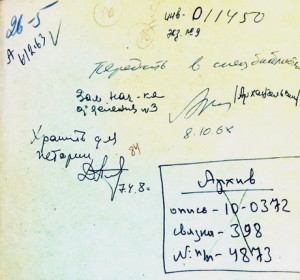 26-5
А 6/12.63
инв- О11450
экз. №9
Передать в спецбиблиотеку
Зам. нач-ка
отделения №3
/Архангельский/
8.10.6
Хранить для
истории
84
7.4.8
Архив
опись - 10-0372
связка - 398
N: пр - 4873